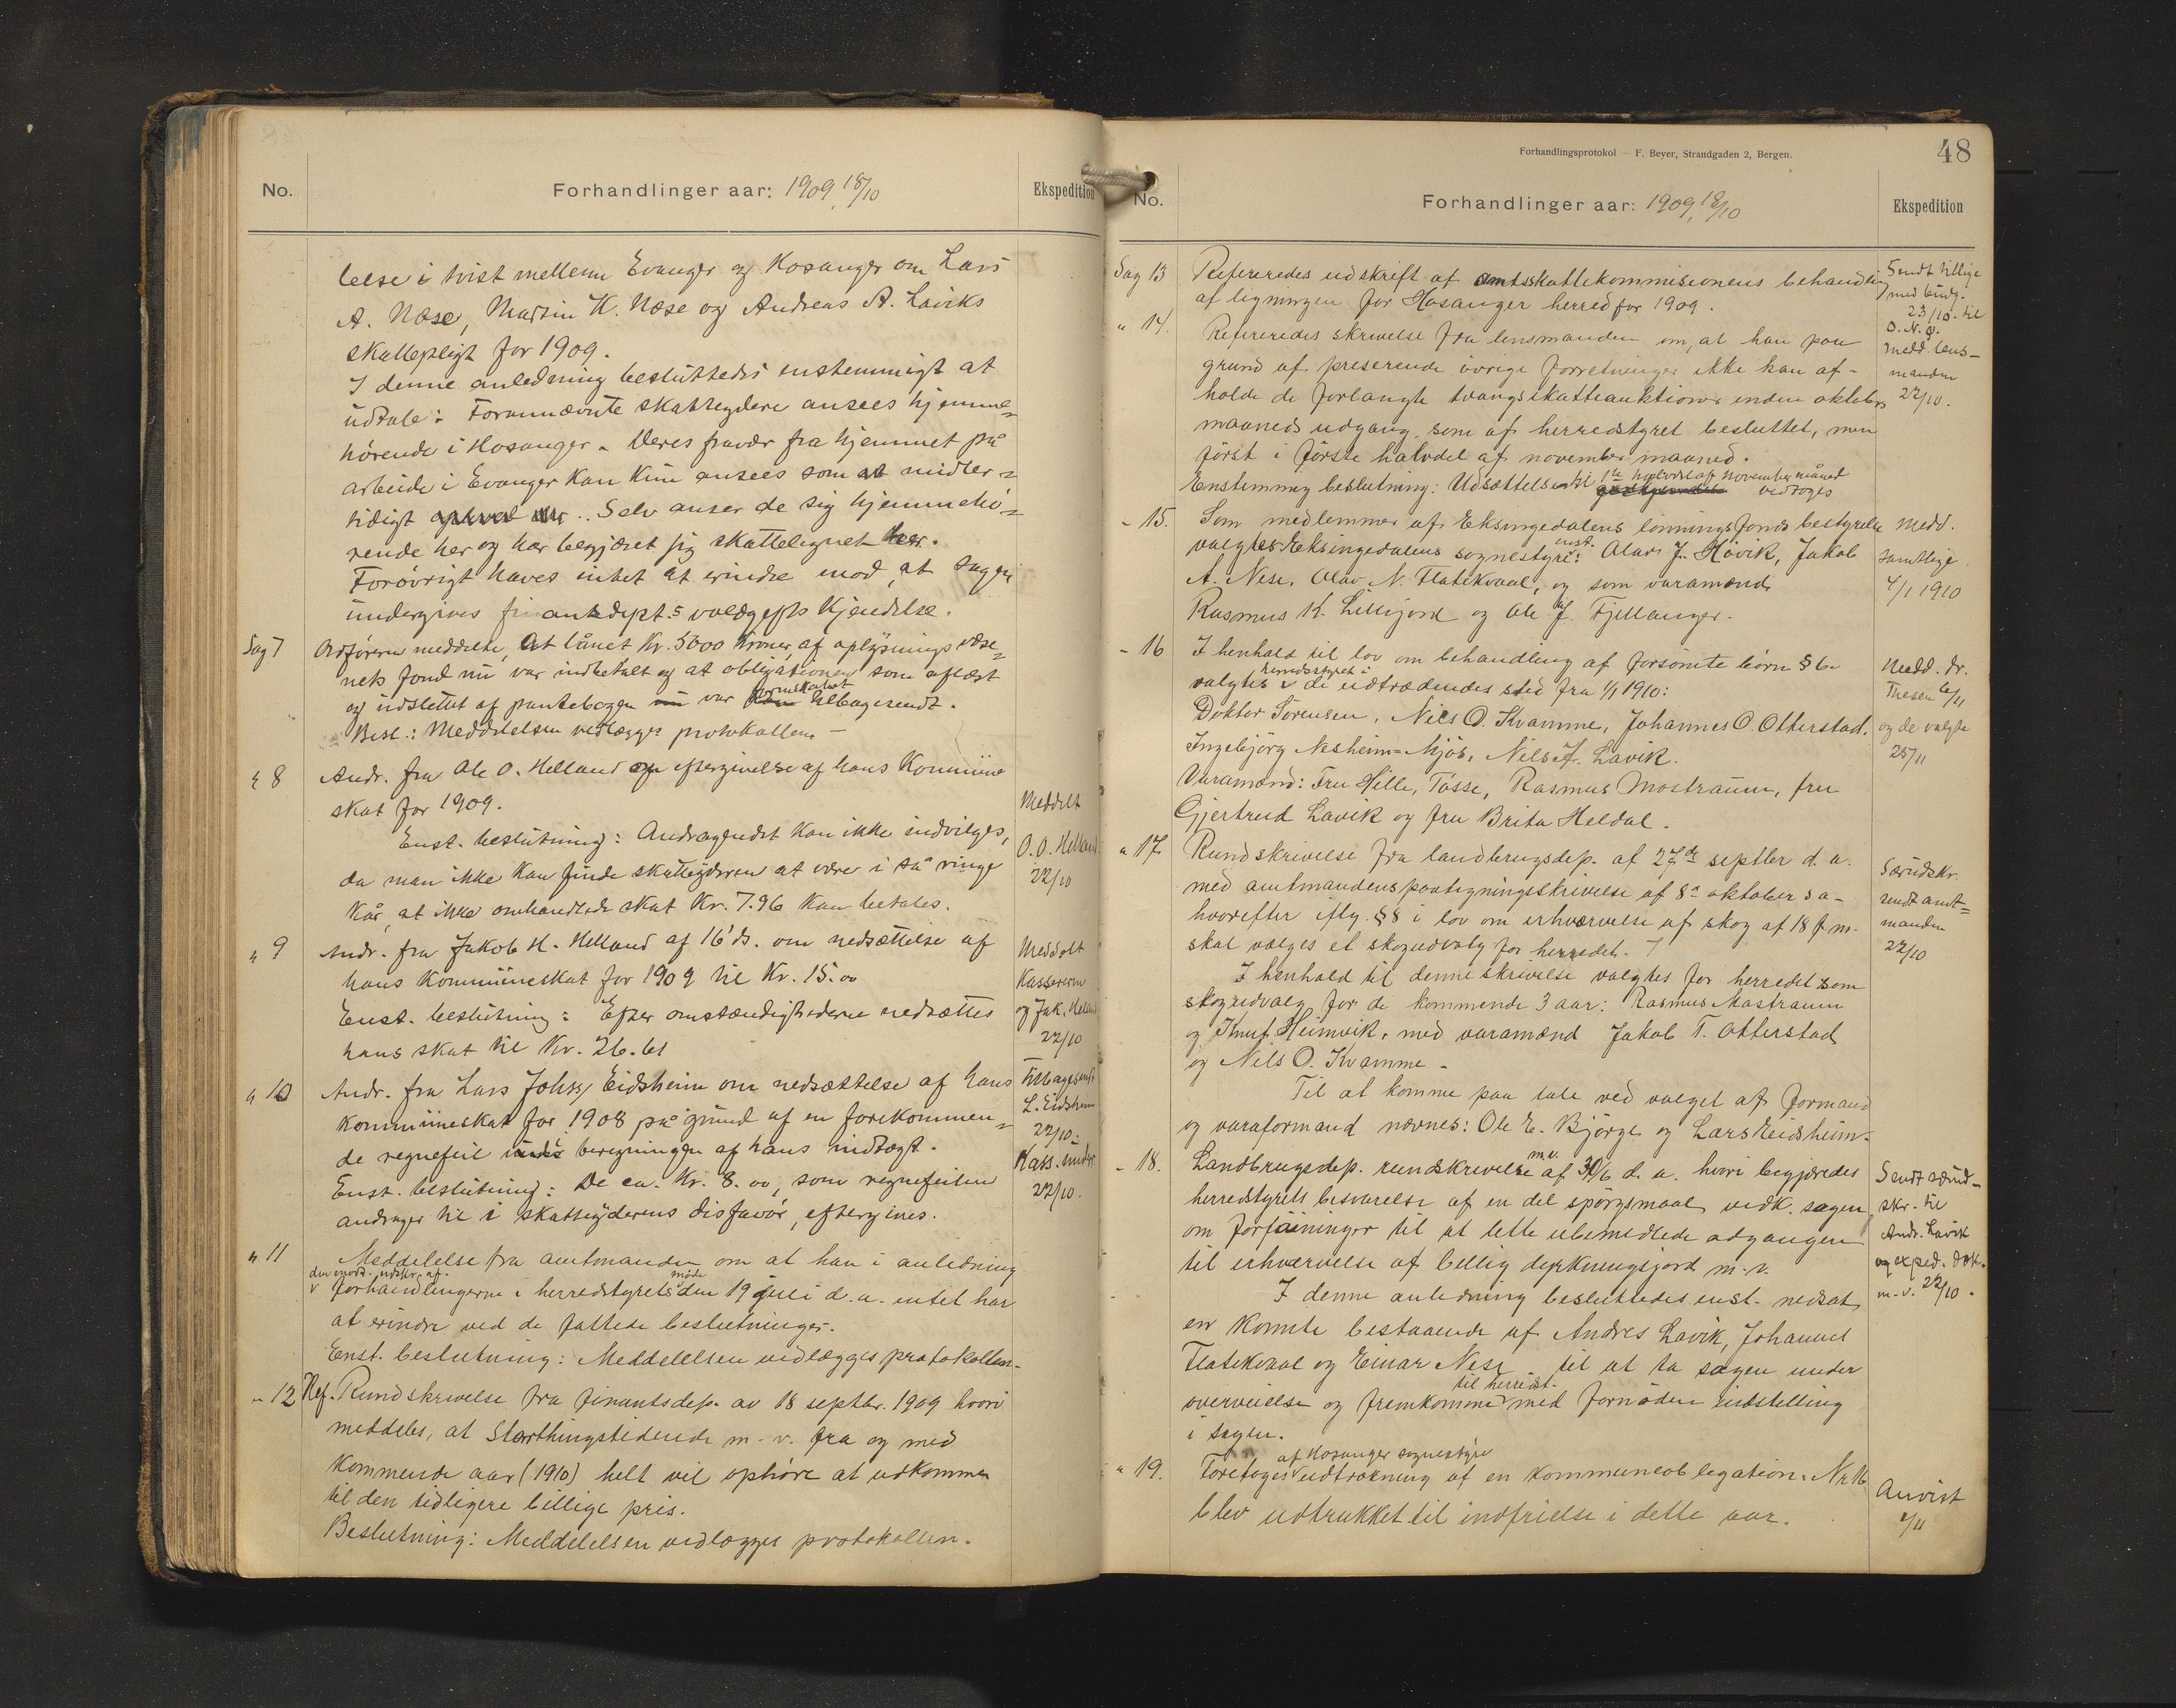 No. Forhandlinger aar: 1909, 18/10 Ekspedition
lelse i tvist mellem Evanger og Hosanger om Lars
A. Næse, Martin K. Næse og Andreas A. Laviks
skattepligt for 1909.
I denne anledning besluttedes enstemmigt at
udtale: Forannævnte skatteydere ansees hjemme=
hørende i Hosanger. Deres fravær fra hjemmet på
arbeide i Evanger kan kun ansees som et midler=
tidigt ophold der. Selv anser de sig hjemmehø=
rende her og har begjæret sig skattelignet her.
Forøvrigt haves intet at erindre mod, at sagen
undergives finantsdept.s voldgifts kjendelse.
Sag 7 Ordføreren meddelte, at lånet Kr. 5000 kroner af oplysningsvæse=
nets fond nu var indbetalt og at obligationen som aflæst
og udslettet af pantebogen var formskabet tilbagesendt.
Besl.: Meddelelsen vedlægges protokollen –
" 8 Andr. fra Ole O. Helland om eftergivelse af hans kommune
skat for 1909.
Enst. beslutning: Andragendet kan ikke indvilges,
da man ikke kan finde skatteyderen at være i så ringe
kår, at ikke omhandlede skat Kr. 7.96 kan betales.
Meddelt
O. O. Helland
22/10
" 9 Andr. fra Jakob H. Helland af 16' ds. om nedsættelse af
hans kommuneskat for 1909 til Kr. 15.00
Enst. beslutning: Efter omstændighederne nedsættes
hans skat til Kr. 26.61
Meddelt
Kassereren
og Jak. Helland
22/10
" 10 Andr. fra Lars Johss. Eidsheim om nedsættelse af hans
kommuneskat for 1908 på grund af en forekommen=
de regnefeil under beregningen af hans indtægt.
Enst. beslutning: De ca. Kr. 8.00, som regnefeilen
andrager til i skatteyderens disfavør, eftergives.
Tilbagesendt
L. Eidsheim
22/10.
Kass. under
22/10.
" 11 Meddelelse fra amtmanden om at han i anledning
den modt. udskr. af
forhandlingerne i herredstyrets møde den 19 juli d.a. intet har
at erindre ved de fattede beslutninger.
Enst. beslutning: Meddelelsen vedlægges protokollen.
" 12 Ref. Rundskrivelse fra finantsdep. av 18 septbr. 1909 hvori
meddeles, at Storthingstidende m.v. fra og med
kommende aar (1910) helt vil ophøre at udkomme
til den tidligere billige pris.
Beslutning: Meddelelsen vedlægges protokollen.
Forhandlingsprotokol — F. Beyer, Strandgaden 2, Bergen.
48
No. Forhandlinger aar: 1909, 18/10 Ekspedition
Sag 13 Refereredes udskrift af amtsskattekommisionens behandling
af ligningen for Hosanger herred for 1909.
Sendt tillige
med budg.
23/10. til
" 14. Refereredes skrivelse fra lensmanden om, at han paa
grund af preserende øvrige forretninger ikke kan af-
holde de forlangte tvangsskatteauktioner inden oktober
maaneds udgang, som af herredstyret besluttet, men
først i første halvdel af november maaned.
Enstemmig beslutning: Udsættelsen til 1ste halvdel af november måned
vedtoges
Medd. lens-
manden
22/10.
" 15. Som medlemmer af Eksingedalens lønningsfonds bestyrelse
valgtes Eksingedalens sognestyre enst.: Olav J. Høvik, Jakob
A. Nese, Olav N. Flatekvaal, og som varamænd
Rasmus K. Lillejord og Ole J. Fjellanger.
Medd.
samtlige
4/1 1910
" 16 I henhold til lov om behandling af forsømte børn § 6
valgtes herredsstyret i de udtrædendes sted fra 1/1 1910:
Doktor Sørensen, Nils O. Kvamme, Johannes O. Otterstad,
Ingebjørg Nesheim-Mjøs, Nils J. Lavik.
Varamænd: Fru Hille, Tøsse, Rasmus Mostraum, fru
Gjertrud Lavik og fru Brita Heldal.
Medd. dr.
Thesen 6/11
og de valgte
25/11
" 17. Rundskrivelse fra landbrugsdep. af 27de septbr d. a.
med amtmandens paategningsskrivelse af 8' oktober s a-
hvorefter iflg. § 8 i lov om erhvervelse af skog af 18 f. m.
skal vælges et skogudvalg for herredet.
I henhold til denne skrivelse valgtes for herredet som
skogudvalg for de kommende 3 aar: Rasmus Mostraum
og Knut Heimvik, med varamænd Jakob T. Otterstad
og Nils O. Kvamme –
Til at komme paa tale ved valget af formand
og varaformand nævnes: Ole E. Bjørge og Lars Eidsheim.
Særudskr.
sendt amt=
manden
22/10
" 18. Landbrugsdep. rundskrivelse m.v. af 30/6 d. a. hvori begjæredes
herredstyrets besvarelse af en del spørgsmaal vedk. sagen
om forføininger til at lette ubemidlede adgangen
til erhvervelse af billig dyrkningsjord m.v.
I denne anledning besluttedes enst. nedsat
en komite bestaaende af Andres Lavik, Johannes
Flatekvaal og Einar Nese til at ta sagen under
overveielse og fremkomme til herredst. med fornøden indstilling
i sagen.
Sendt særud-
skr. til
Andr. Lavik
og exped. dok.
m.v. 22/10.
" 19. Foretoges af Hosanger sognestyre udtrækning af en kommuneobligation. Nr 16
blev udtrukket til indfrielse i dette aar.
Anvist